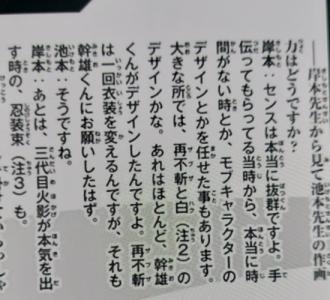 ――岸本先生から見て池本先生の作画
力はどうですか？
岸本：センスは本当に抜群ですよ。手
伝ってもらってる当時から、本当に時
間がない時とか、モブキャラクターの
デザインとかを任せた事もあります。
大きな所では、再不斬と白（注２）の
デザインかな。あれはほとんど、幹雄
くんがデザインしたんですよ。再不斬
は一回衣装を変えるんですが、それも
幹雄くんにお願いしたはず。
池本：そうですね。
岸本：あとは、三代目火影が本気を出
す時の、忍装束（注３）も。